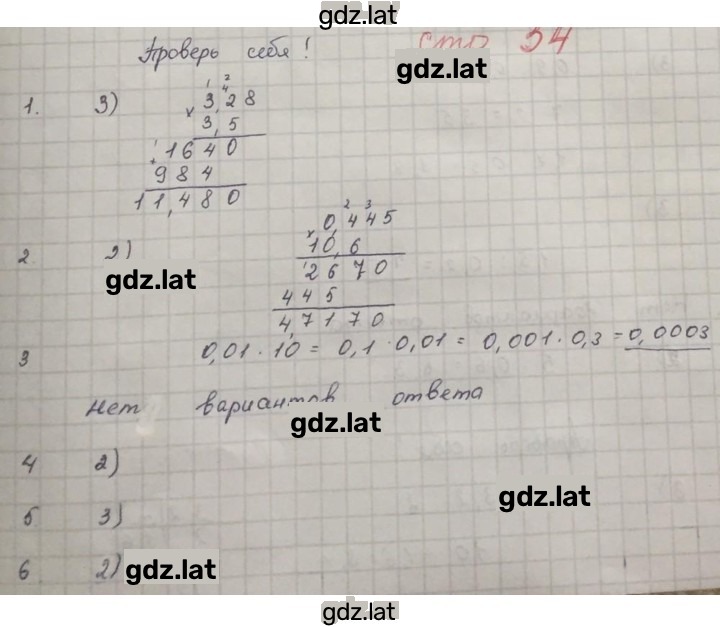 gdz.lat
Проверь себя! стр 34
gdz.lat
1. 3) 1 2
4
× 3,28
3,5
1
+ 1640
984
11,480
2. 2) 2 3
× 0,445
10,6
gdz.lat
1
2670
445
4,7170
3 0,01 · 10 = 0,1 · 0,01 = 0,001 · 0,3 = 0,0003
Нет вариантов ответа
gdz.lat
4 2)
gdz.lat
5 3)
6 2) gdz.lat
gdz.lat